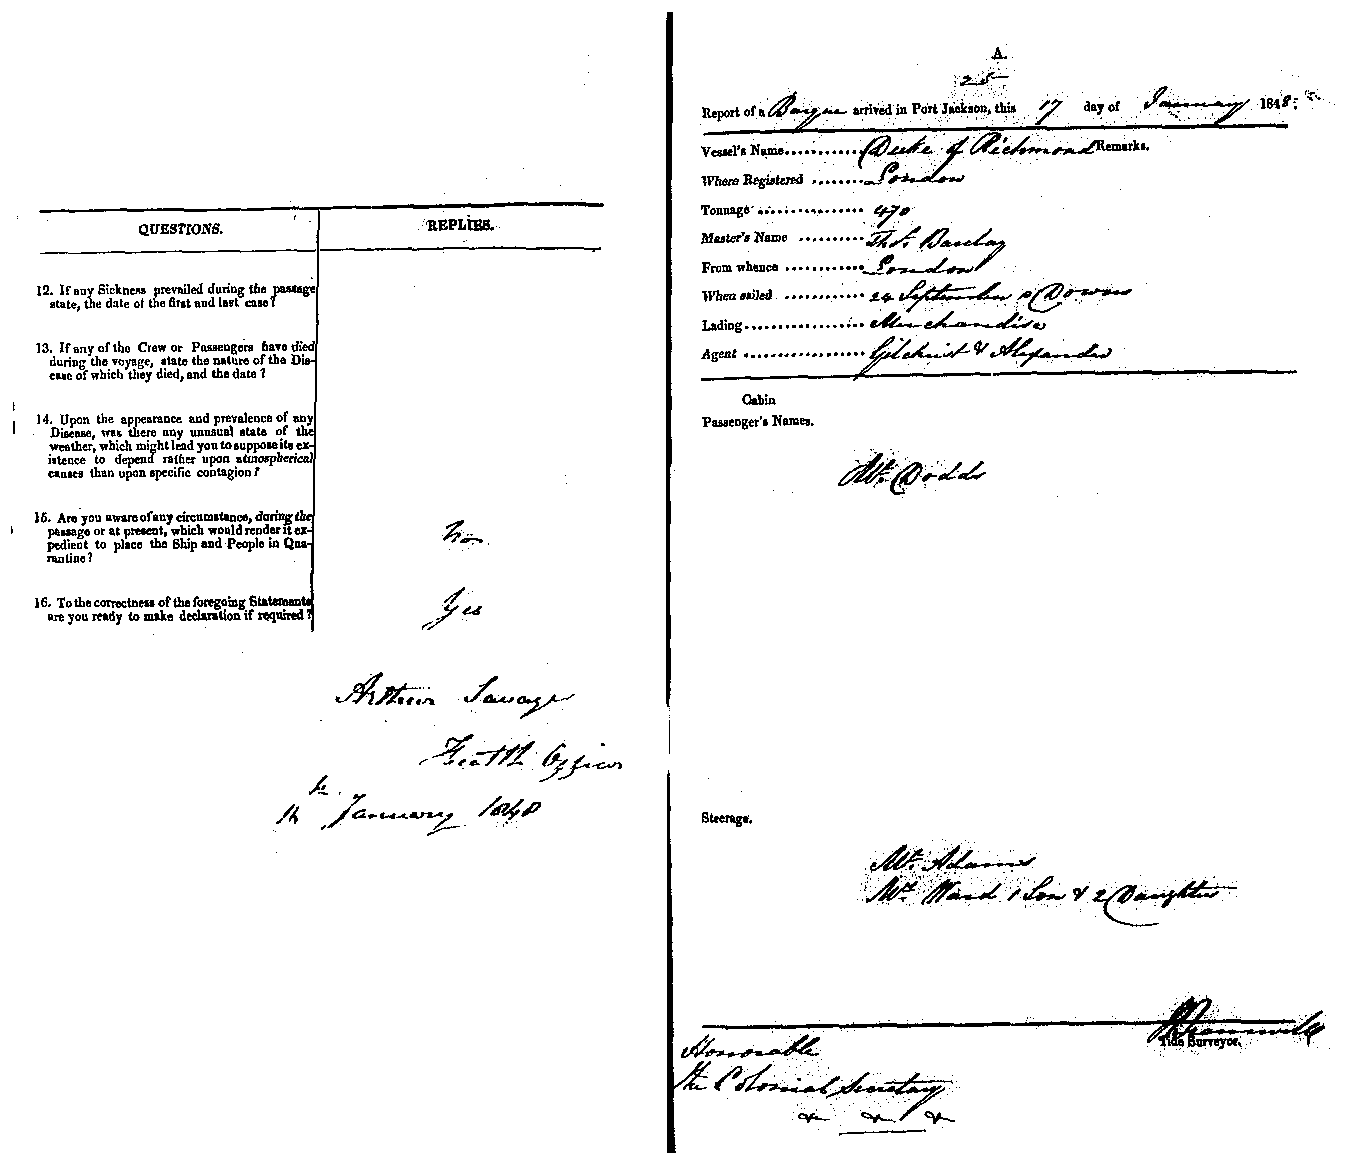 QUESTIONS.
REPLIES.
12. If any Sickness prevailed during the passage
state, the date of the first and last case?
13. If any of the Crew or Passengers have died
during the voyage, state the nature of the Dis-
ease of which they died, and the date?
14. Upon the appearance and prevalence of any
Disease, was there any unusual state of the
weather, which might lead you to suppose its ex-
istence to depend rather upon atmospherical
causes than upon specific contagion?
15. Are you aware of any circumstance, during the
passage or at present, which would render it ex-
pedient to place the Ship and People in Qua-
rantine?
No
16. To the correctness of the foregoing Statements
are you ready to make declaration if required?
Yes
Arthur Savage
Health Officer
January 1848
A.
25
Report of a Barque arrived in Port Jackson, this 17 day of January 1848:
Vessel's Name........... Duke of Richmond Remarks.
Where Registered ........ London
Tonnage ............... 470
Master's Name .......... Thos. Barclay
From whence ............ London
When sailed ............ 24 September Downs
Lading.................. Merchandise
Agent .................. Gilchrist & Alexander
Cabin
Passenger's Names.
Mr. Dodds
Steerage.
Mr. Adams
Ward 1 Son & 2 Daughters
Tide Surveyor.
Honorable
The Colonial Secretary